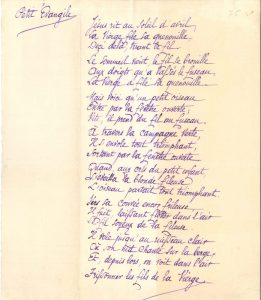 Petit Evangile
Jésus rit au soleil d'avril
La Vierge file sa quenouille
Deçà delà, tirant le fil.
Le sommeil vient le fil se brouille
Aux doigts qu'a lassés le fuseau
La Vierge a filé sa quenouille
Mais voici qu'un petit oiseau
Entre par la fenêtre ouverte,
Vite, il prend du fil au fuseau.
A travers la campagne verte,
Il s'envole tout triomphant,
Sortant par la fenêtre ouverte
Quand, aux cris du petit enfant
S'éveilla la blonde fileuse
L'oiseau partait tout triomphant
Vers sa couvée encor frileuse
Il fuit, laissant flotter dans l'air
Le fil soyeux de la fileuse
Il vole jusqu'au ruisseau clair
Où, son nid chante sur la berge,
Et depuis lors, on voit dans l'air
Frissonner les fils de la Vierge